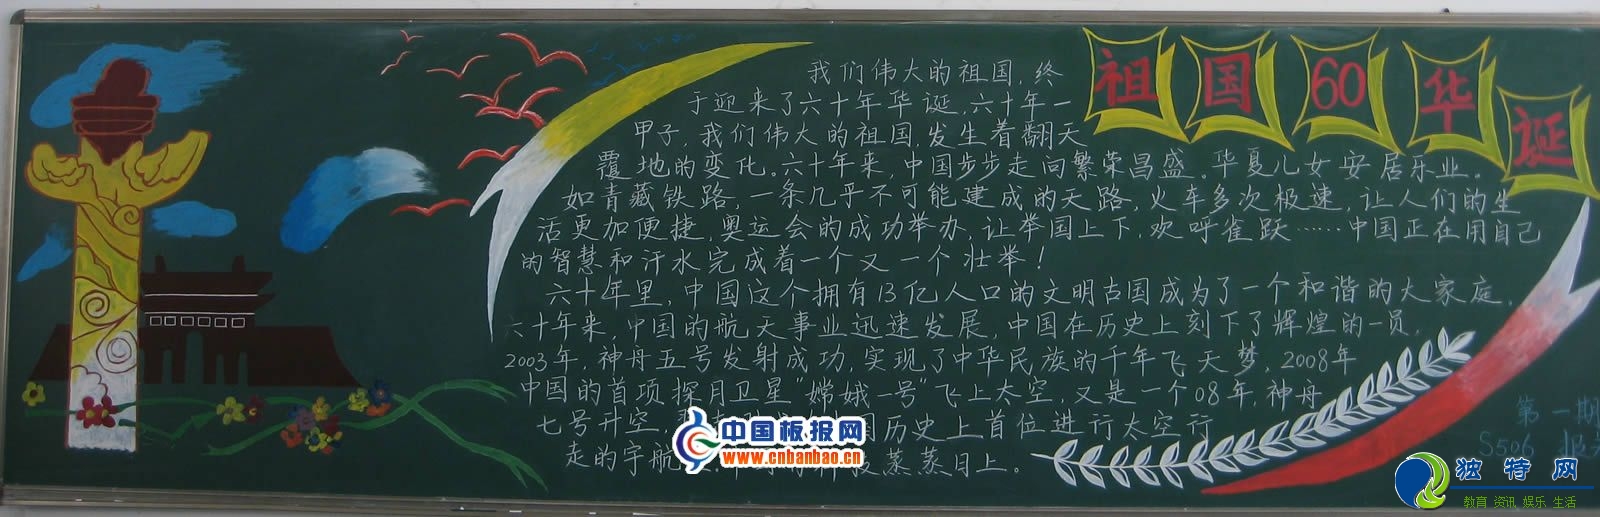 祖国60华诞
我们伟大的祖国,终
于迎来了六十年华诞,六十年一
甲子,我们伟大的祖国,发生着翻天
覆地的变化。六十年来,中国步步走向繁荣昌盛。华夏儿女安居乐业。
如青藏铁路,一条几乎不可能建成的天路,火车多次极速,让人们的生
活更加便捷,奥运会的成功举办,让举国上下,欢呼雀跃……中国正在用自己
的智慧和汗水完成着一个又一个壮举!
六十年里,中国这个拥有13亿人口的文明古国成为了一个和谐的大家庭,
六十年来,中国的航天事业迅速发展,中国在历史上刻下了辉煌的一员,
2003年,神舟五号发射成功,实现了中华民族的千年飞天梦,2008年
中国的首项探月卫星"嫦娥一号"飞上太空,又是一个08年,神舟
七号升空,国历史上首位进行太空行
走的宇航蒸蒸日上。
第一期
S506
中国板报网
www.cnbanbao.cn
独特网
教育 资讯 娱乐 生活